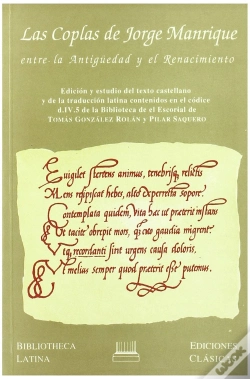 Las Coplas de Jorge Manrique
entre la Antigüedad y el Renacimiento
Edición y estudio del texto castellano
y de la traducción latina contenidos en el códice
d.IV.5 de la Biblioteca de el Escorial de
TOMÁS GONZÁLEZ ROLÁN y PILAR SAQUERO
Euigilet stertens animus, tenebrisq, relictis
Mens resipiscat hebes, alto deperreta sopore
Contemplata quidem, vita hac ut præterit instans
Ut tacite obrepit mors, qu cito gaudia migrent
Vtq, recordanti sint urgens causa doloris,
Et melius semper quod præterit esse putemus.
BIBLIOTHECA
LATINA
EDICIONES